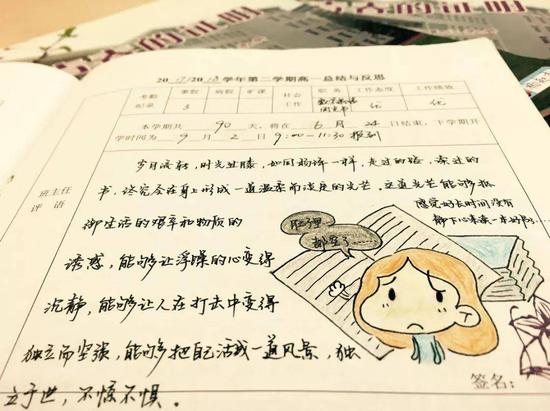 2017/2018学年第二学期高一总结与反思
考勤纪录 事假 3 病假 旷课 社会工作 职务 工作态度 优 工作绩效 优
本学期共 90 天，将在 6 月 24 日结束，下学期开
学时间为 9 月 2 日 9:00—11:30 报到
班主任评语
岁月流转，时光过隙，如同杨绛一样，走过的路，读过的
书，终究会在身上形成一道温柔而淡定的光芒，这道光芒能够抵
御生活的艰辛和物质的
诱惑，能够让浮躁的心变得
沉静，能够让人在打击中变得
独立而坚强，能够把自己活成一道风景，独
立于世，不惊不惧．
感觉好长时间没有
静下心来读一本好书……
肚子里…
都空了……
签名：